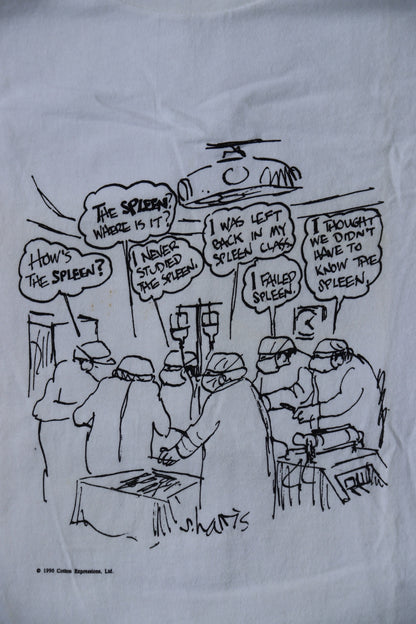 THE SPLEEN?
WHERE IS IT?
HOW'S
THE SPLEEN?
I NEVER
STUDIED
THE SPLEEN.
I WAS LEFT
BACK IN MY
SPLEEN CLASS.
I FAILED
SPLEEN.
I THOUGHT
WE DIDN'T
HAVE TO
KNOW THE
SPLEEN.
s.harris
© 1990 Cotton Expressions, Ltd.